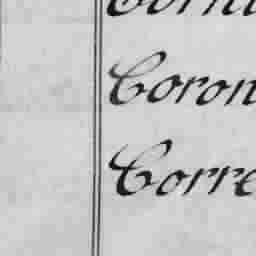 Coron
Corre